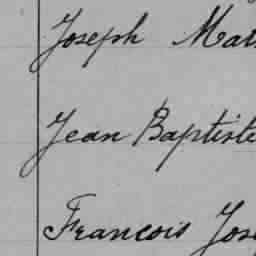 Joseph Mat
Jean Baptiste
Francois Jos